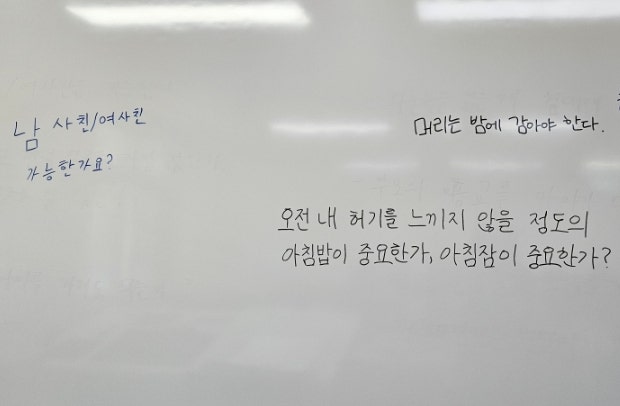 남사친/여사친
가능한가요?
머리는 밤에 감아야 한다.
오전 내 허기를 느끼지 않을 정도의
아침밥이 중요한가, 아침잠이 중요한가?